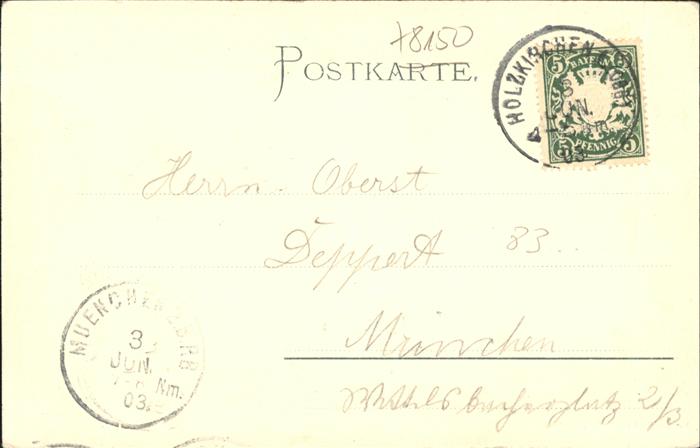 78150
POSTKARTE.
HOLZKIRCHEN
5 BAYERN 5
3
JUN.
Nm.
03
5 PFENNIG 5
Herrn Oberst
Deppert 83
München
Wittelsbacherplatz 2/3
MUENCHEN
3
JUN.
Nm.
03